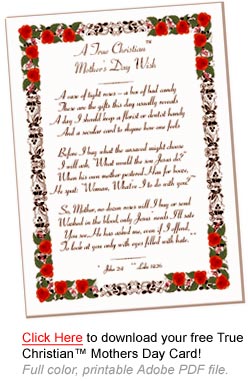 A True Christian™
Mother's Day Wish
A vase of tight roses – a box of bad candy
These are the gifts this day usually reveals
A day I should keep a florist or dentist handy
And a secular card to dispense how one feels
Before I buy what the unsaved might choose
I will ask, "What would the son Jesus do?"
When his own mother pestered Him for booze,
He spat: "Woman, What've I to do with you?"*
So, Mother, no dozen roses will I buy or send
Washed in the blood, only Jesus meals I'll eat
You see, He has asked me, even if I offend,
To look at you only with eyes filled with hate.**
* John 2:4 ** Luke 14:26
Click Here to download your free True
Christian™ Mothers Day Card!
Full color, printable Adobe PDF file.